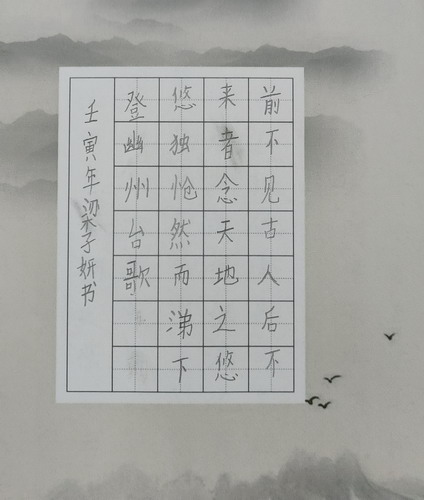 前不见古人后不
来者念天地之悠
悠独怆然而涕下
登幽州台歌
壬寅年梁子妍书